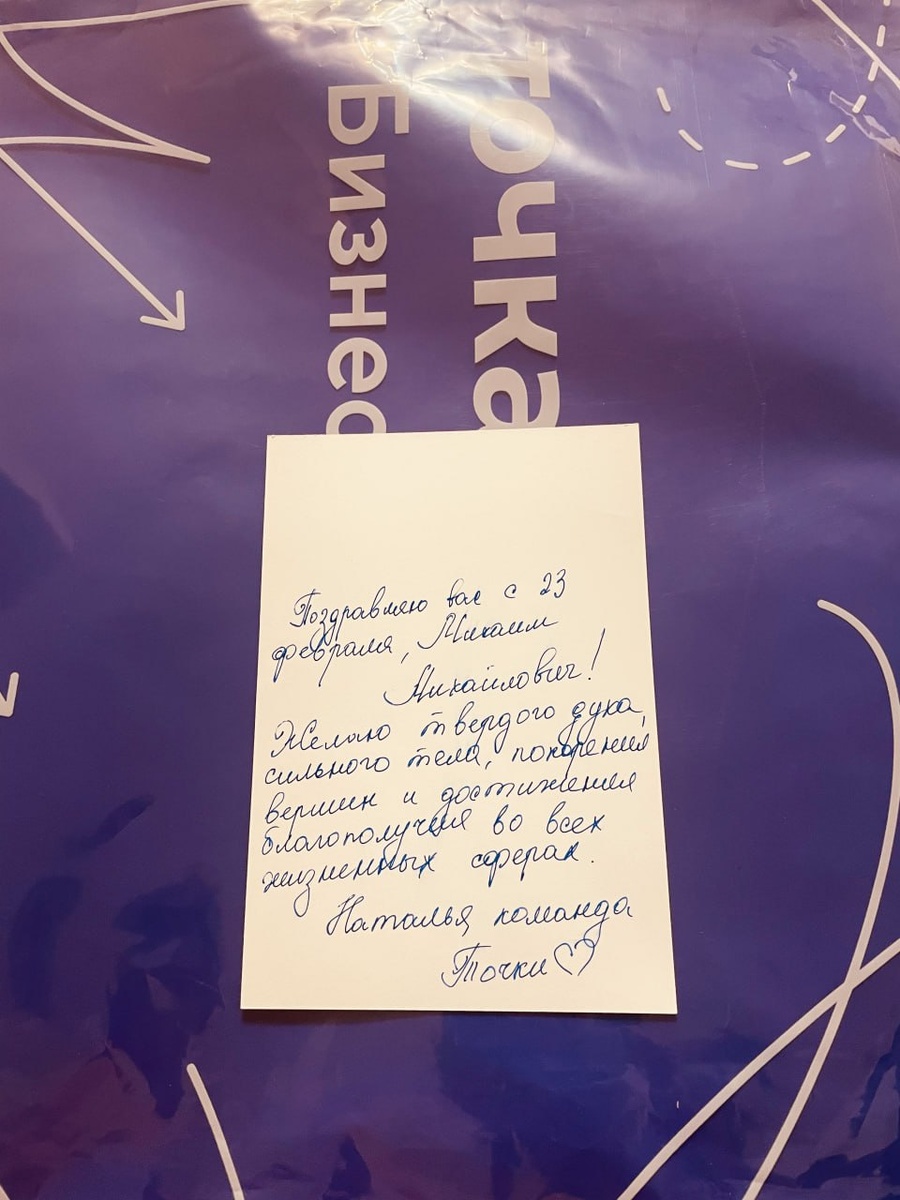 точка
Бизнес
Поздравляю вас с 23
февраля, Михаил
Михайлович!
Желаю твердого духа,
сильного тела, покорения
вершин и достижения
благополучия во всех
жизненных сферах.
Наталья команда
Точки♡